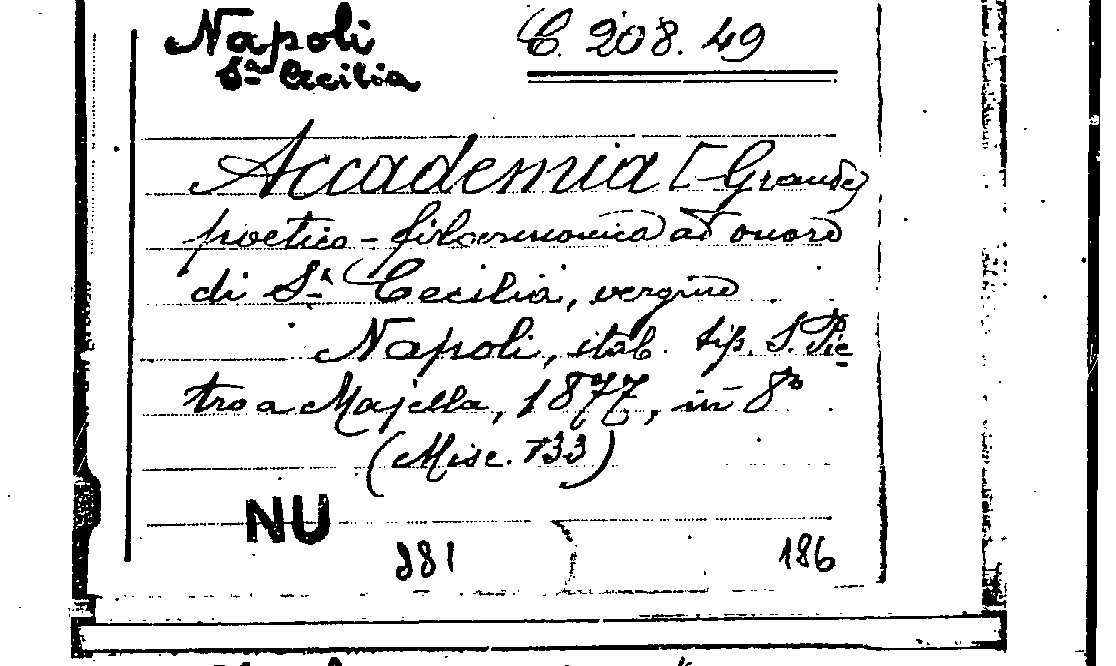 Napoli C. 208. 49
Sª Cecilia
Accademia [Grande]
poetico-filarmonica ad onore
di Sª Cecilia, vergine
Napoli, stab. tip. S. Pie
tro a Majella, 1877, in 8º
(Misc. 733)
NU
281 186